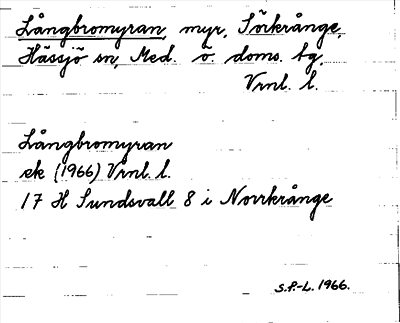 Långbromyran, myr, Sörkrånge,
Hässjö sn, Med. ö. doms. tg,
Vrnl. l.
Långbromyran
ek (1966) Vrnl. l.
17 H Sundsvall 8 i Norrkrånge
S.P.-L. 1966.